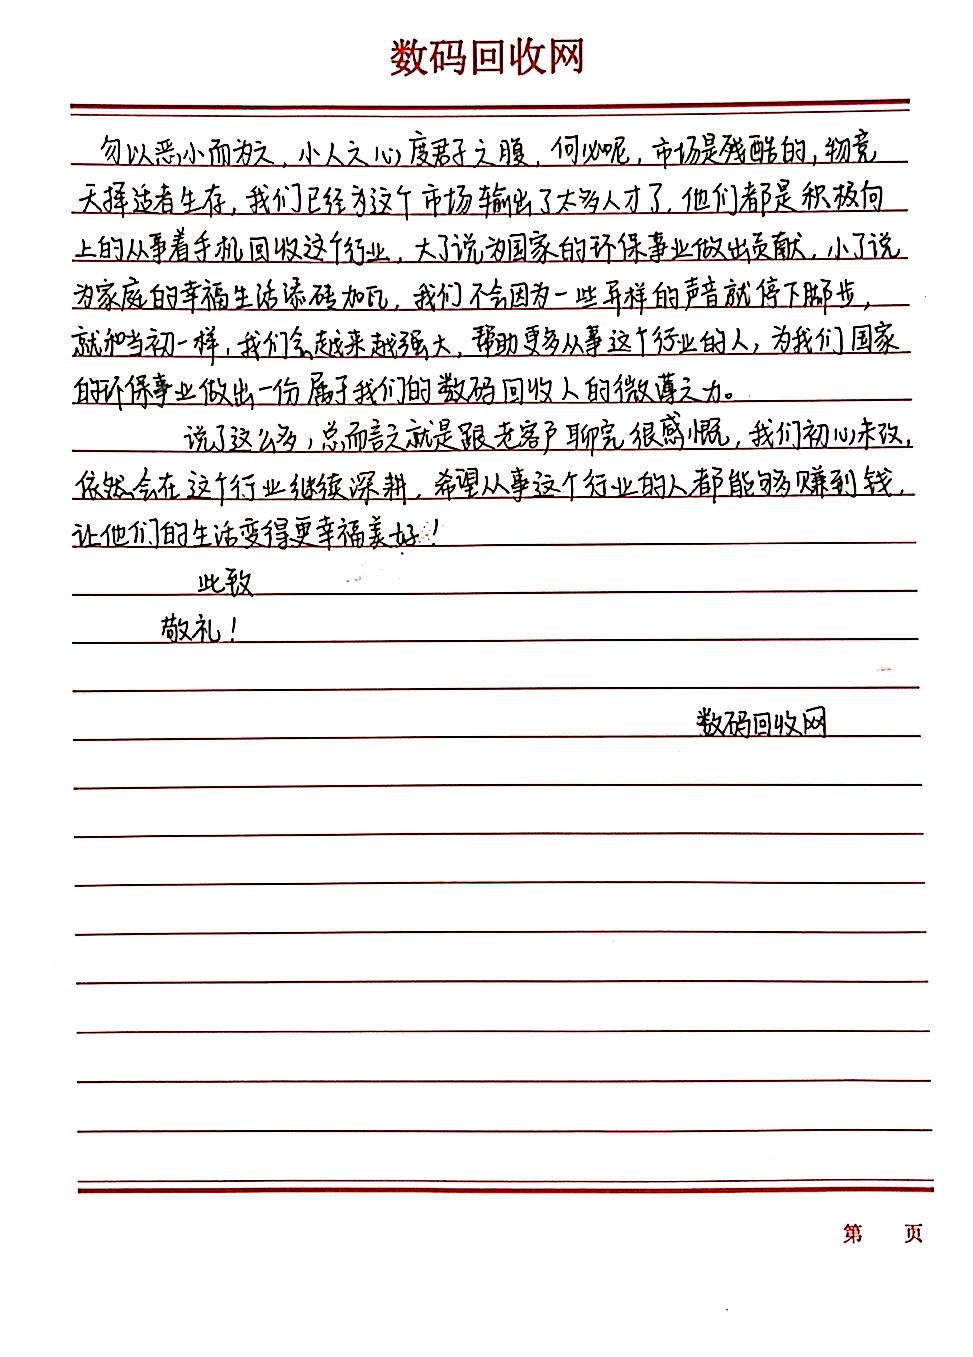 数码回收网
勿以恶小而为之，小人之心度君子之腹，何必呢，市场是残酷的，物竞
天择适者生存，我们已经为这个市场输出了太多人才了，他们都是积极向
上的从事着手机回收这个行业，大了说为国家的环保事业做出贡献，小了说
为家庭的幸福生活添砖加瓦，我们不会因为一些异样的声音就停下脚步，
就和当初一样，我们会越来越强大，帮助更多从事这个行业的人，为我们国家
的环保事业做出一份属于我们的数码回收人的微薄之力。
说了这么多，总而言之就是跟老客户聊完很感慨，我们初心未改，
依然会在这个行业继续深耕，希望从事这个行业的人都能够赚到钱，
让他们的生活变得更幸福美好！
此致
敬礼！
数码回收网
第 页